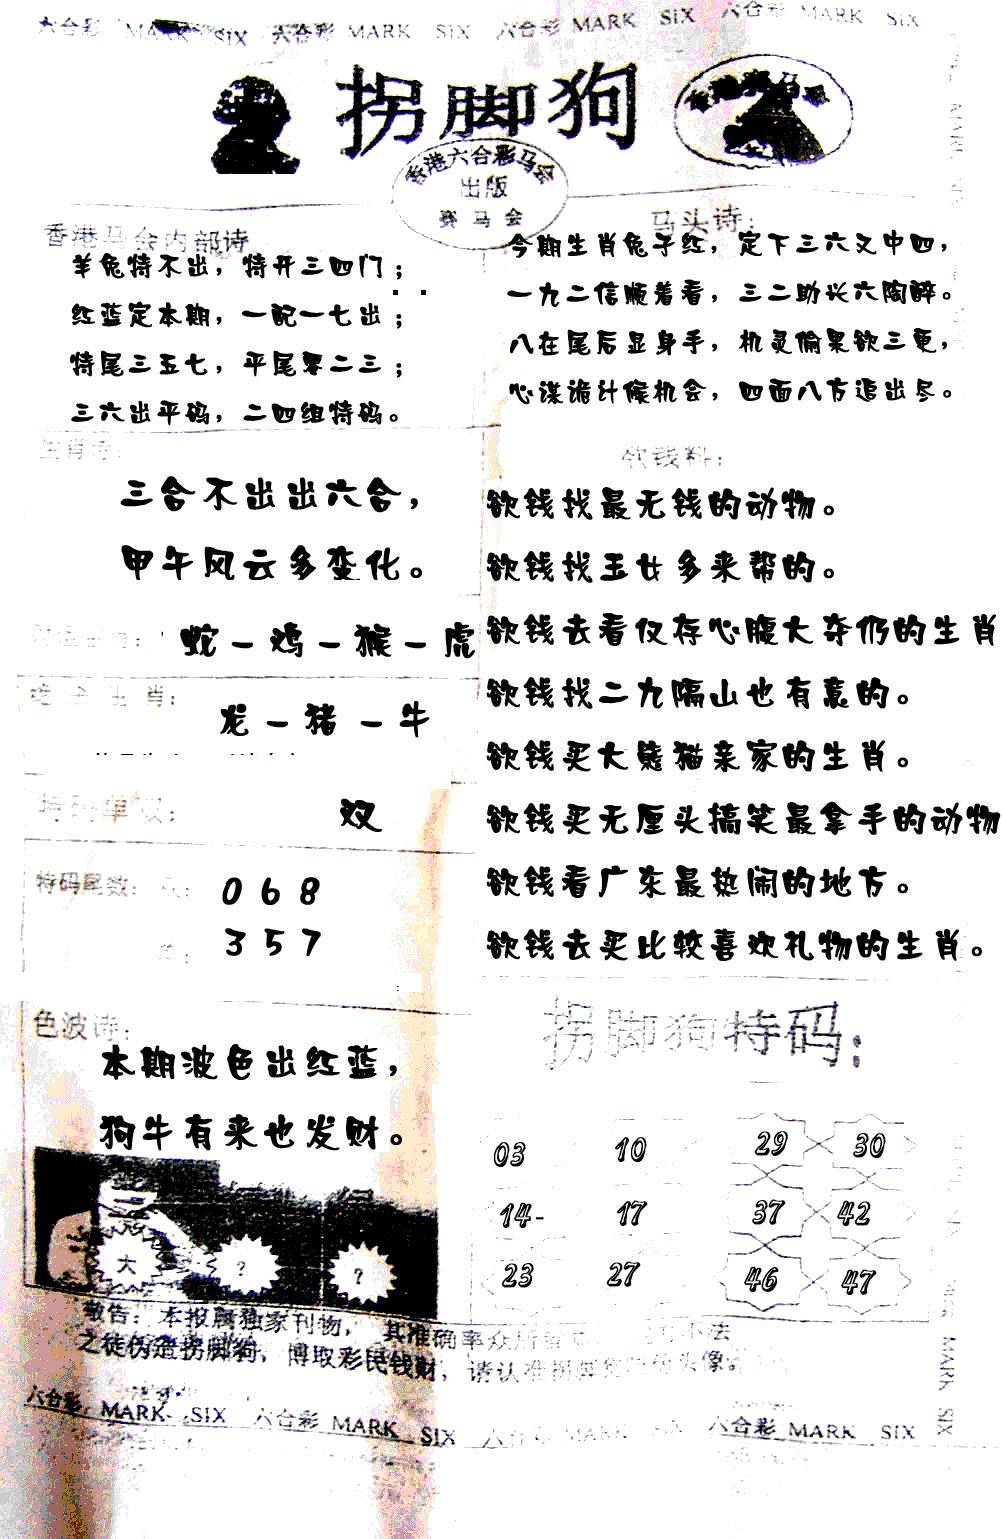 六合彩 MARK SIX 六合彩 MARK SIX 六合彩 MARK SIX 六合彩 MARK SIX
拐脚狗
香港六合彩马会
出版
赛马会
香港马会内部诗
羊兔特不出，特开三四门；
红蓝定本期，一配一七出；
特尾三五七，平尾零二三；
三六出平码，二四组特码。
马头诗：
今期生肖兔子红，定下三六又中四，
一九二信顺着看，三二助长六陶醉。
八在尾后显身手，机灵偷果欲三更，
心谋诡计候机会，四面八方追出尽。
生肖诗：
三合不出出六合，
甲午风云多变化。
蛇－鸡－猴－虎
生肖：
龙－猪－牛
特码单双：
双
特码尾数：
0 6 8
3 5 7
色波诗：
本期波色出红蓝，
狗牛有来也发财。
大
?
?
欲钱料：
欲钱找最无钱的动物。
欲钱找玉女多来帮的。
欲钱去看仅存心腹大夺仍的生肖
欲钱找二九隔山也有意的。
欲钱买大熊猫亲家的生肖。
欲钱买无厘头搞笑最拿手的动物
欲钱看广东最热闹的地方。
欲钱去买比较喜欢礼物的生肖。
拐脚狗特码：
03 10 29 30
14- 17 37 42
23 27 46 47
敬告：本报属独家刊物，其准确率众所 不法
之徒伪造拐脚狗，博取彩民钱财，请认准拐脚狗 头像
六合彩 MARK SIX 六合彩 MARK SIX 六合彩 MARK SIX 六合彩 MARK SIX
MARK SIX